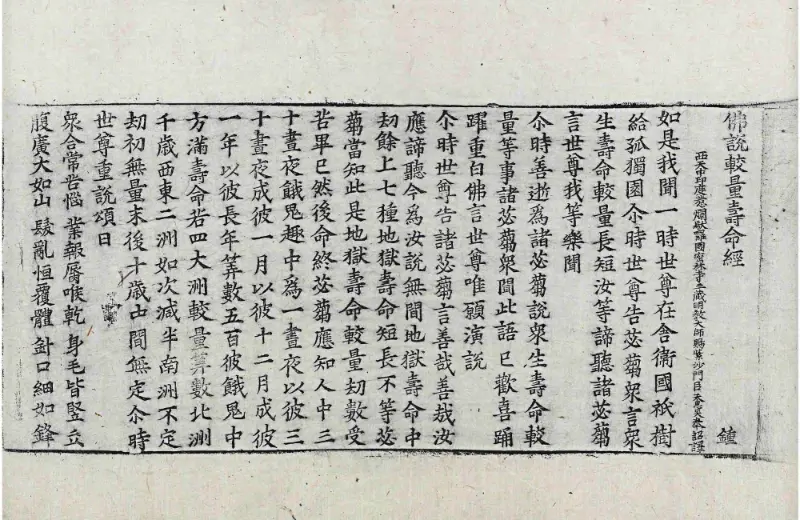 佛說較量壽命經 鍾
西天中印度惹爛馱囉國密林寺三藏明教大師賜紫沙門臣天息災奉 詔譯
如是我聞一時世尊在舍衛國祇樹
給孤獨園尒時世尊告苾蒭衆言衆
生壽命較量長短汝等諦聽諸苾蒭
言世尊我等樂聞
尒時善逝為諸苾蒭說衆生壽命較
量等事諸苾蒭衆聞此語已歡喜踊
躍重白佛言世尊唯願演說
尒時世尊告諸苾蒭言善哉善哉汝
應諦聽今為汝說無間地獄壽命中
劫餘上七種地獄壽命短長不等苾
蒭當知此是地獄壽命較量劫數受
苦畢已然後命終苾蒭應知人中三
十晝夜餓鬼趣中為一晝夜以彼三
十晝夜成彼一月以彼十二月成彼
一年以彼長年筭數五百彼餓鬼中
方滿壽命若四大洲較量筭數北洲
千歲西東二洲如次減半南洲不定
劫初無量末後十歲中間無定尒時
世尊重說頌曰
衆合常苦惱 業報脣喉乾 身毛皆竪立
腹廣大如山 髮亂恒覆體 針口細如鋒